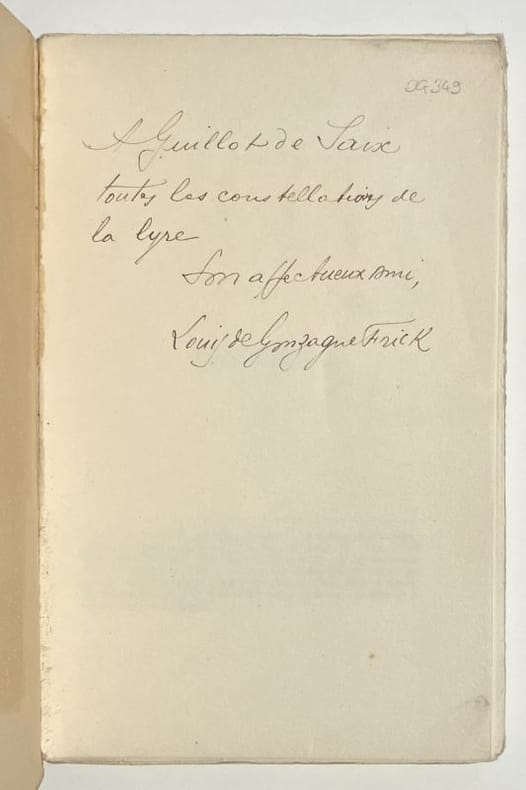 DG 349
A Guillot de Saix
toutes les constellations de
la lyre
Son affectueux ami,
Louis de Gonzague Frick